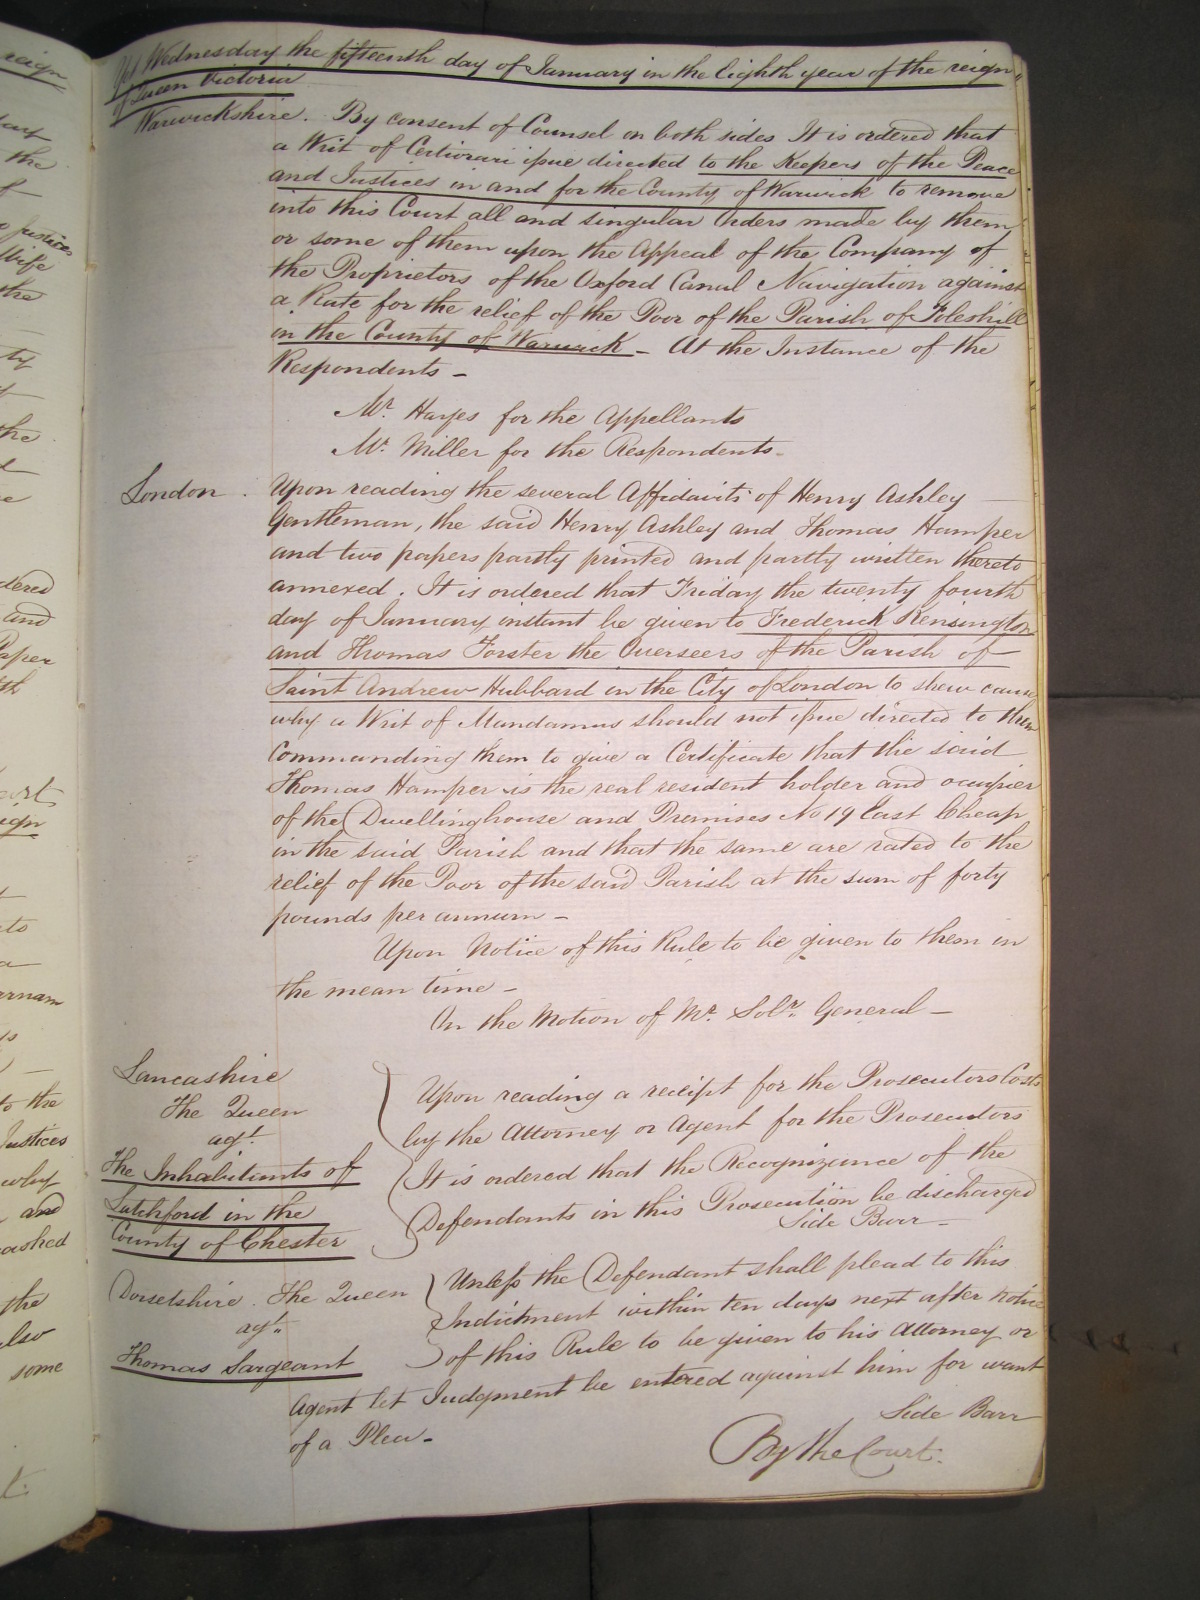 Yet Wednesday the fifteenth day of January in the Eighth year of the reign
of Queen Victoria
Warwickshire. By consent of Counsel on both sides It is ordered that
a Writ of Certiorari issue directed to the Keepers of the Peace
and Justices in and for the County of Warwick to remove
into this Court all and singular Orders made by them
or some of them upon the Appeal of the Company of
the Proprietors of the Oxford Canal Navigation against
a Rate for the relief of the Poor of the Parish of Foleshill
in the County of Warwick – At the Instance of the
Respondents –
Mr. Hayes for the Appellants
Mr. Miller for the Respondents –
London. Upon reading the several Affidavits of Henry Ashley
Gentleman, the said Henry Ashley and Thomas Hamper
and two papers partly printed and partly written thereto
annexed. It is ordered that Friday the twenty fourth
day of January instant be given to Frederick Kensington
and Thomas Forster the Overseers of the Parish of
Saint Andrew Hubbard in the City of London to shew cause
why a Writ of Mandamus should not issue directed to them
Commanding them to give a Certificate that the said
Thomas Hamper is the real resident holder and occupier
of the Dwellinghouse and Premises No 19 East Cheap
in the said Parish and that the same are rated to the
relief of the Poor of the said Parish at the sum of forty
pounds per annum –
Upon Notice of this Rule to be given to them in
the mean time –
On the Motion of Mr. Solr. General –
Lancashire
The Queen
agt.
The Inhabitants of
Latchford in the
County of Chester
Upon reading a receipt for the Prosecutors Costs
by the Attorney or Agent for the Prosecutors
It is ordered that the Recognizance of the
Defendants in this Prosecution be discharged
Side Barr –
Dorsetshire. The Queen
agt.
Thomas Sargeant
Unless the Defendant shall plead to this
Indictment within ten days next after notice
of this Rule to be given to his Attorney or
Agent let Judgment be entered against him for want
of a Plea –
Side Barr
By the Court.